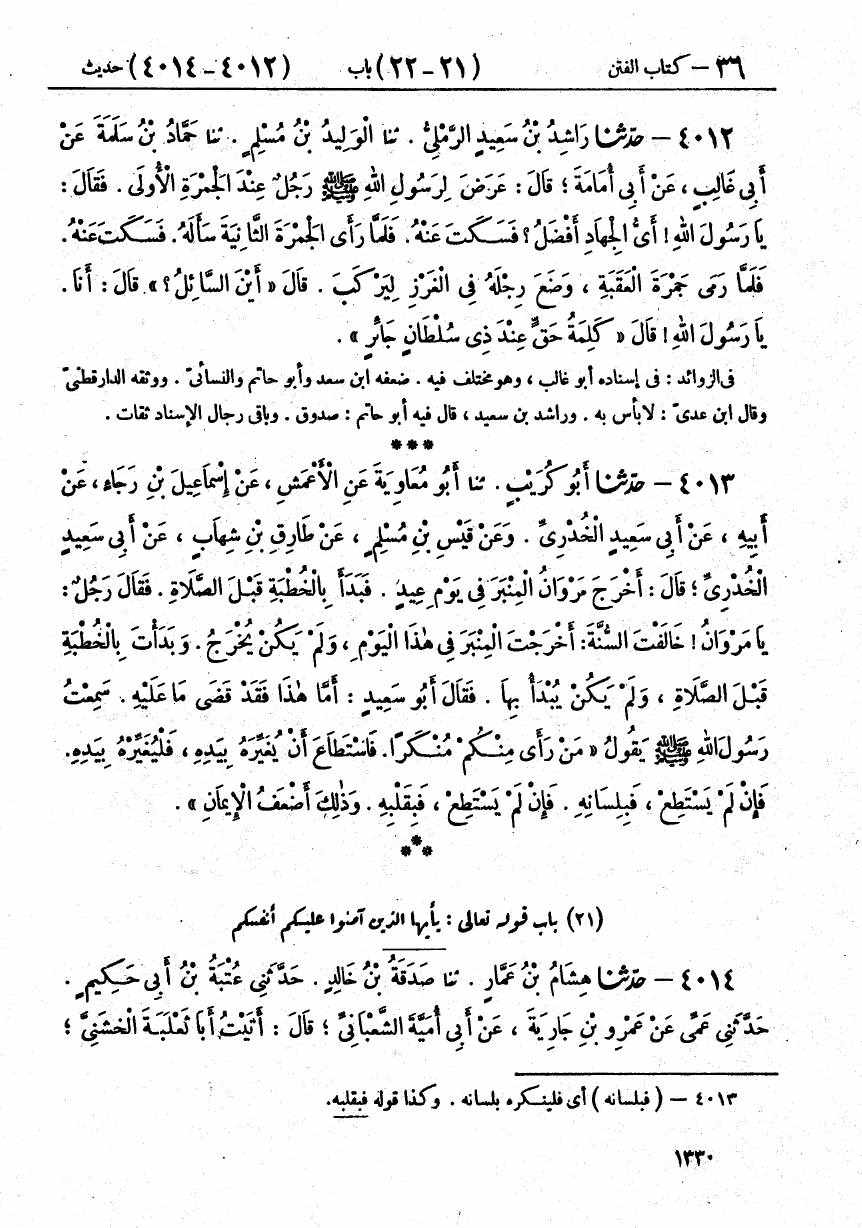 ٣٦ — كتاب الفتن (٢١-٢٢) باب (٤٠١٢-٤٠١٤) حديث
٤٠١٢ — حدّثنا رَاشِدُ بْنُ سَعِيدٍ الرَّمْلِيُّ . ثنا الْوَلِيدُ بْنُ مُسْلِمٍ . ثنا حَمَّادُ بْنُ سَلَمَةَ عَنْ
أَبِي غَالِبٍ ، عَنْ أَبِي أُمَامَةَ ؛ قَالَ : عَرَضَ لِرَسُولِ اللهِ ﷺ رَجُلٌ عِنْدَ الْجَمْرَةِ الْأُولَى . فَقَالَ :
يَا رَسُولَ اللهِ ! أَىُّ الْجِهَادِ أَفْضَلُ ؟ فَسَكَتَ عَنْهُ . فَلَمَّا رَأَى الْجَمْرَةَ الثَّانِيَةَ سَأَلَهُ . فَسَكَتَ عَنْهُ .
فَلَمَّا رَمَى جَمْرَةَ الْعَقَبَةِ ، وَضَعَ رِجْلَهُ فِى الْغَرْزِ لِيَرْكَبَ . قَالَ « أَيْنَ السَّائِلُ ؟ » . قَالَ : أَنَا .
يَا رَسُولَ اللهِ ! قَالَ « كَلِمَةُ حَقٍّ عِنْدَ ذِى سُلْطَانٍ جَائِرٍ » .
فى الزوائد : فى إسناده أبو غالب ، وهو مختلف فيه . ضعفه ابن سعد وأبو حاتم والنسائىّ . ووثقه الدارقطنىّ
وقال ابن عدىّ : لا بأس به . وراشد بن سعيد ، قال فيه أبو حاتم : صدوق . وباقى رجال الإسناد ثقات .
***
٤٠١٣ — حدّثنا أَبُو كُرَيْبٍ . ثنا أَبُو مُعَاوِيَةَ عَنِ الْأَعْمَشِ ، عَنْ إِسْمَاعِيلَ بْنِ رَجَاءٍ ، عَنْ
أَبِيهِ ، عَنْ أَبِي سَعِيدٍ الْخُدْرِىِّ . وَعَنْ قَيْسِ بْنِ مُسْلِمٍ ، عَنْ طَارِقِ بْنِ شِهَابٍ ، عَنْ أَبِي سَعِيدٍ
الْخُدْرِىِّ ؛ قَالَ : أَخْرَجَ مَرْوَانُ الْمِنْبَرَ فِى يَوْمِ عِيدٍ . فَبَدَأَ بِالْخُطْبَةِ قَبْلَ الصَّلَاةِ . فَقَالَ رَجُلٌ :
يَا مَرْوَانُ ! خَالَفْتَ السُّنَّةَ : أَخْرَجْتَ الْمِنْبَرَ فِى هٰذَا الْيَوْمِ ، وَلَمْ يَكُنْ يُخْرَجُ . وَبَدَأْتَ بِالْخُطْبَةِ
قَبْلَ الصَّلَاةِ ، وَلَمْ يَكُنْ يُبْدَأُ بِهَا . فَقَالَ أَبُو سَعِيدٍ : أَمَّا هٰذَا فَقَدْ قَضَى مَا عَلَيْهِ . سَمِعْتُ
رَسُولَ اللهِ ﷺ يَقُولُ « مَنْ رَأَى مِنْكُمْ مُنْكَرًا . فَاسْتَطَاعَ أَنْ يُغَيِّرَهُ بِيَدِهِ ، فَلْيُغَيِّرْهُ بِيَدِهِ .
فَإِنْ لَمْ يَسْتَطِعْ ، فَبِلِسَانِهِ . فَإِنْ لَمْ يَسْتَطِعْ ، فَبِقَلْبِهِ . وَذٰلِكَ أَضْعَفُ الْإِيمَانِ » .
***
(٢١) باب قوله تعالى : يأيها الذين آمنوا عليكم أنفسكم
٤٠١٤ — حدّثنا هِشَامُ بْنُ عَمَّارٍ . ثنا صَدَقَةُ بْنُ خَالِدٍ . حَدَّثَنِى عُتْبَةُ بْنُ أَبِي حَكِيمٍ .
حَدَّثَنِى عَمِّى عَنْ عَمْرِو بْنِ جَارِيَةَ ، عَنْ أَبِي أُمَيَّةَ الشَّعْبَانِىِّ ؛ قَالَ : أَتَيْتُ أَبَا ثَعْلَبَةَ الْخُشَنِىَّ ؛
٤٠١٣ — ( فبلسانه ) أى فلينكره بلسانه . وكذا قوله فبقلبه .
١٣٣٠